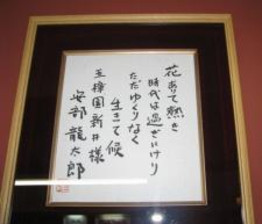 花ありて熱き
時代は過ぎにけり
ただゆくりなく
生きて候
玉樟園新井様
安部龍太郎